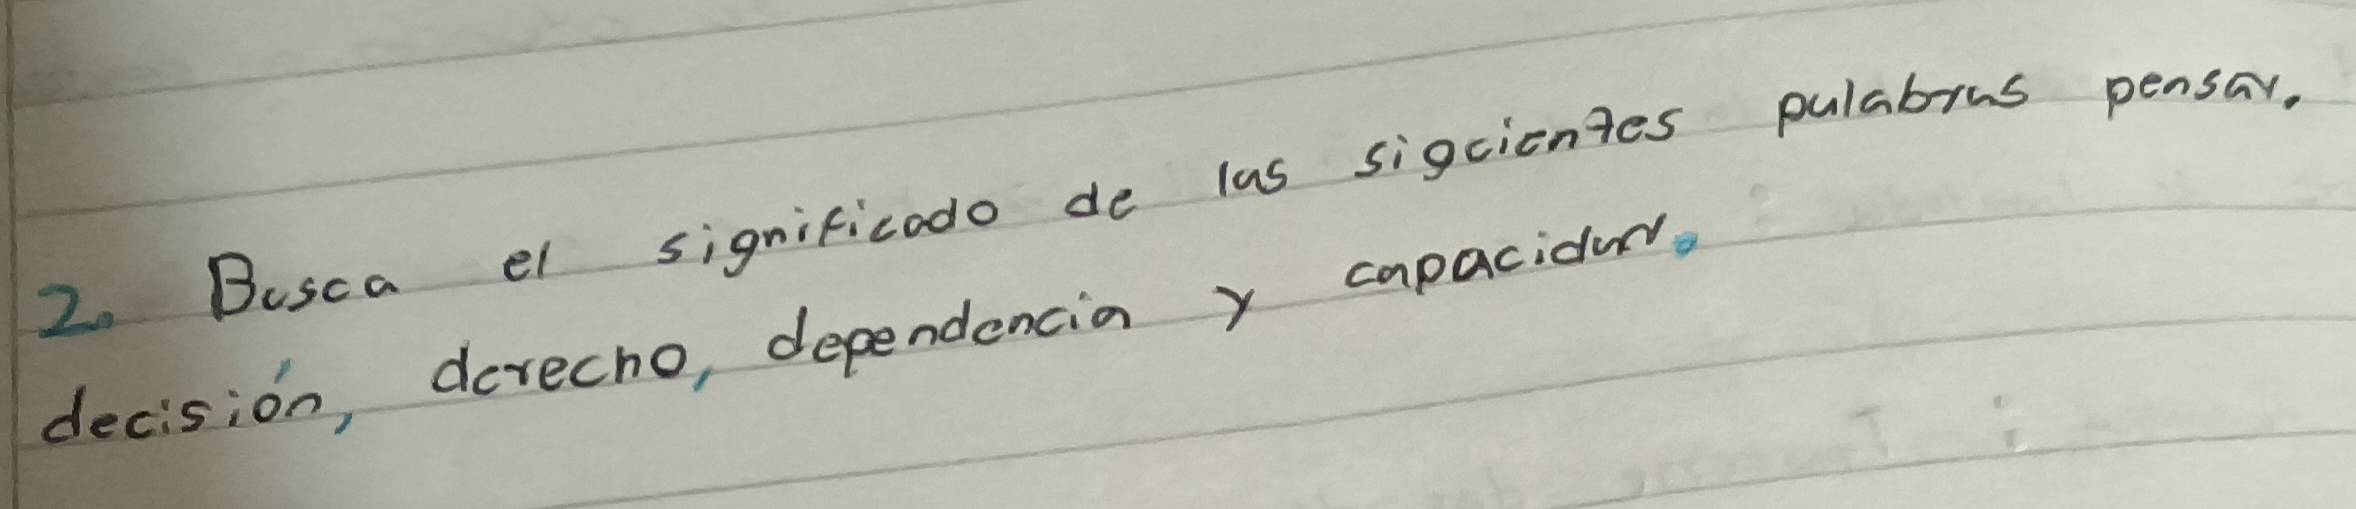 2. Busca el significado de las siguientes palabras pensar.
decisión, derecho, dependencia y capacidad.